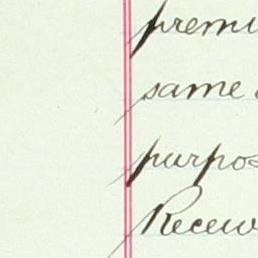 premi
same
purpos
Receiv